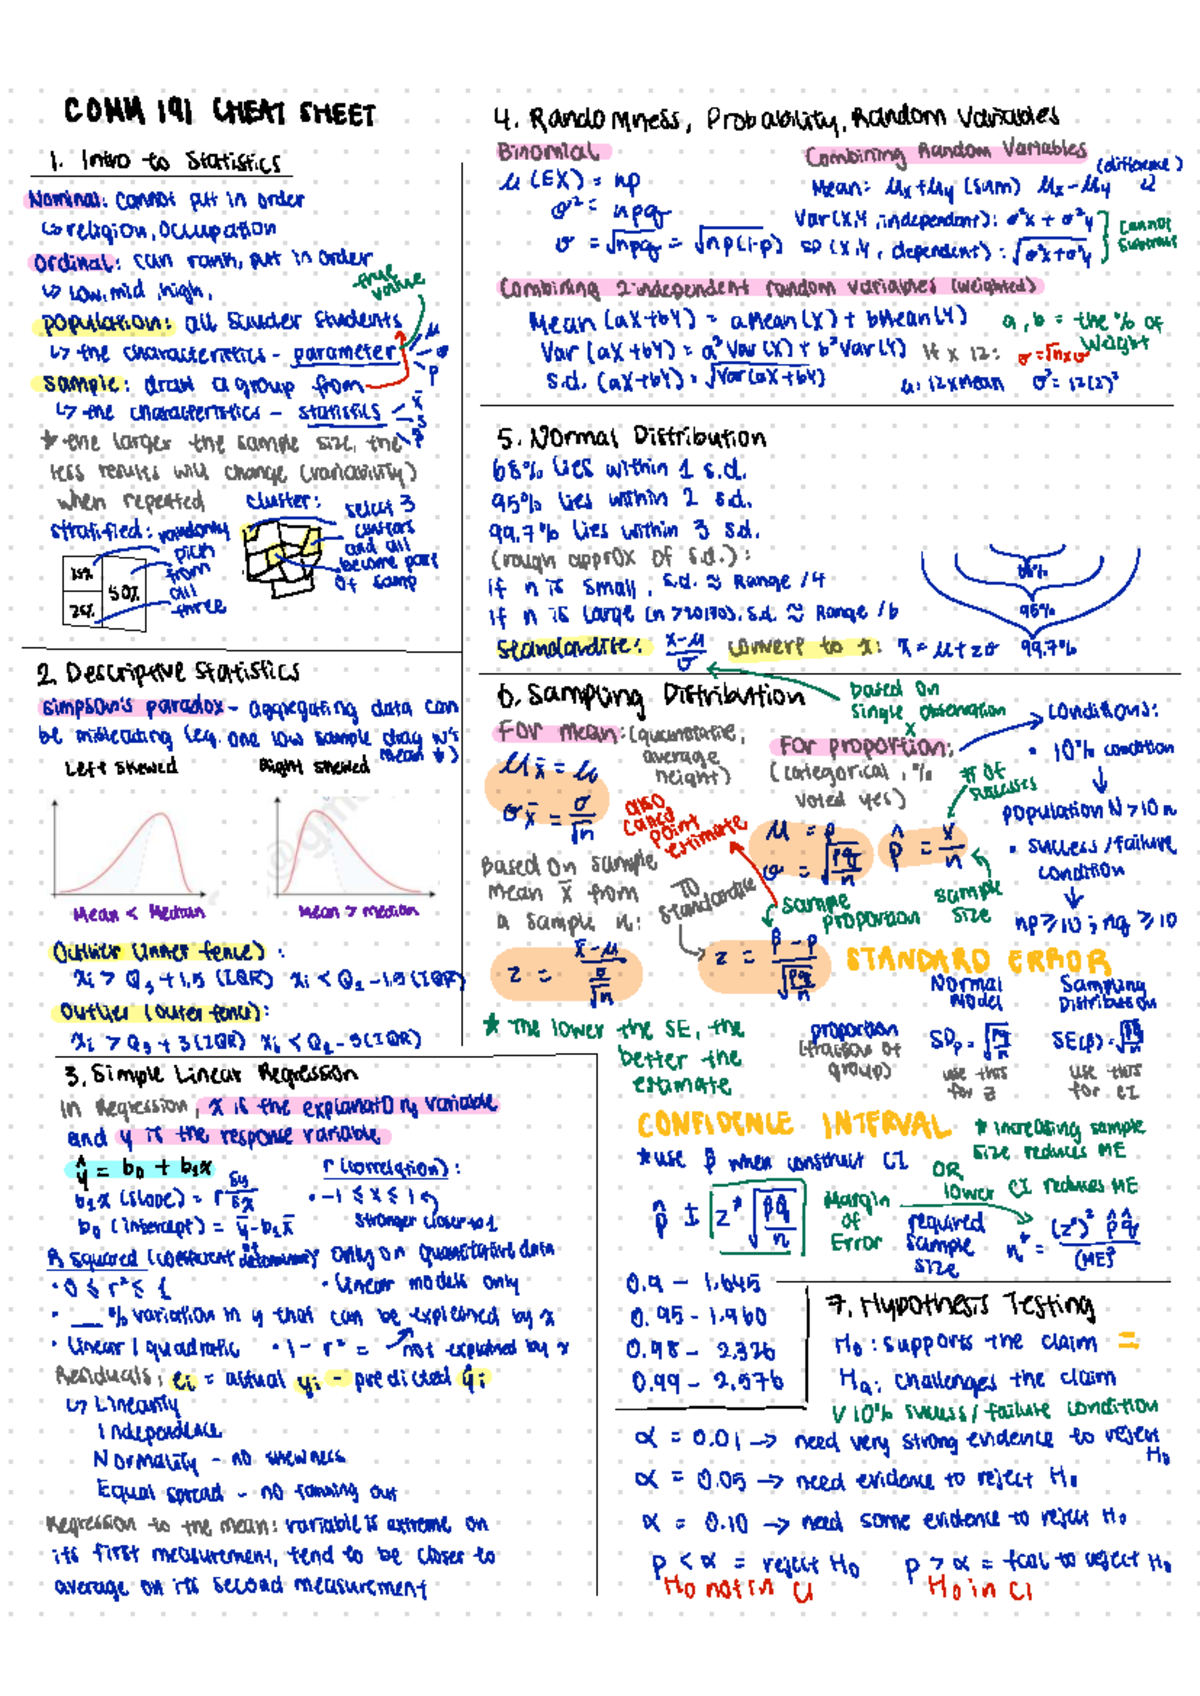 COMM 191 CHEAT SHEET
1. Intro to Statistics
Nominal: cannot put in order
↳ religion, occupation
Ordinal: can rank, put in order
↳ low, mid, high,
population: all Sauder students
true value
↳ the characteristics - parameter
μ
σ
p
sample: draw a group from
↳ the characteristics - statistics
x̄
s
p̂
* the larger the sample size, the
less results will change (variability)
when repeated
stratified: randomly
pick
from
all
three
25%
50%
25%
cluster:
select 3
clusters
and all
become part
of samp
2. Descriptive Statistics
Simpson's paradox - aggregating data can
be misleading (eg. one low sample drag w's
mean ↓)
Left skewed
Right skewed
Mean < Median
Mean > median
Outlier (inner fence):
xi > Q3 + 1.5 (IQR) xi < Q1 - 1.5 (IQR)
Outlier (outer fence):
xi > Q3 + 3(IQR) xi < Q1 - 3(IQR)
3. Simple Linear Regression
In Regression, x is the explanatory variable
and y is the response variable
ŷ = b0 + b1x
b1x (slope) = r sy/sx
b0 (intercept) = ȳ - b1x̄
r (correlation):
· -1 ≤ x ≤ 1
stronger closer to 1
R squared (coefficient of determination) only on quantitative data
· 0 ≤ r² ≤ 1
· linear models only
· __% variation in y that can be explained by x
· linear / quadratic · 1 - r² = → not explained by x
Residuals: ei = actual yi - predicted ŷi
↳ Linearity
Independence
Normality - no skewness
Equal spread - no fanning out
Regression to the mean: variable is extreme on
its first measurement, tend to be closer to
average on its second measurement
4. Randomness, Probability, Random Variables
Binomial
μ (EX) = np
σ² = npq
σ = √npq = √np(1-p)
Combining Random Variables
(difference)
Mean: μx+μy (sum) μx-μy
Var(X,Y, independent): σ²x + σ²y
SD (X,Y, dependent): √σ²x+σ²y
Cannot
subtract
Combining 2 independent random variables (weighted)
Mean (aX+bY) = aMean(X) + bMean(Y)
Var (aX+bY) = a² Var(X) + b² Var(Y)
s.d. (aX+bY) = √Var(aX+bY)
a, b = the % of
weight
If x 12: σ=√nxσ
μ: 12xmean σ²= 12(2)²
5. Normal Distribution
68% lies within 1 s.d.
95% lies within 2 s.d.
99.7% lies within 3 s.d.
(rough approx of s.d.):
if n is small, s.d. ≈ Range /4
if n is large (n > 20/30), s.d. ≈ Range /6
68%
95%
99.7%
Standardize: x-μ/σ convert to x: x = μ+zσ
6. Sampling Distribution
based on
single observation
x
For mean: (quantitative,
average
height)
μx̄ = μ
σx̄ = σ/√n
Based on sample
mean x̄ from
a sample n:
z = x̄-μ / σ/√n
also
called
point
estimate
For proportion:
(categorical, %
voted yes)
μ = p
σ = √pq/n
p̂ = x/n
# of
successes
sample
size
sample
proportion
to
standardize
z = p̂ - p / √pq/n
conditions:
· 10% condition
↓
population N > 10n
· success/failure
condition
↓
np ≥ 10; nq ≥ 10
* The lower the SE, the
better the
estimate
STANDARD ERROR
Normal
Model
Sampling
Distribution
proportion
(fraction of
group)
SDp = √pq/n
use this
for z
SE(p̂) = √p̂q̂/n
use this
for CI
CONFIDENCE INTERVAL
* use p̂ when construct CI
* increasing sample
size reduces ME
OR
lower CI reduces ME
p̂ ± z* √p̂q̂/n
Margin
of
Error
required
sample
size
n* = (z*)² p̂q̂ / (ME)²
0.9 - 1.645
0.95 - 1.960
0.98 - 2.326
0.99 - 2.576
7. Hypothesis Testing
H0: supports the claim =
Ha: challenges the claim
√ 10% success/failure condition
α = 0.01 → need very strong evidence to reject
H0
α = 0.05 → need evidence to reject H0
α = 0.10 → need some evidence to reject H0
p < α = reject H0
H0 not in CI
p > α = fail to reject H0
H0 in CI